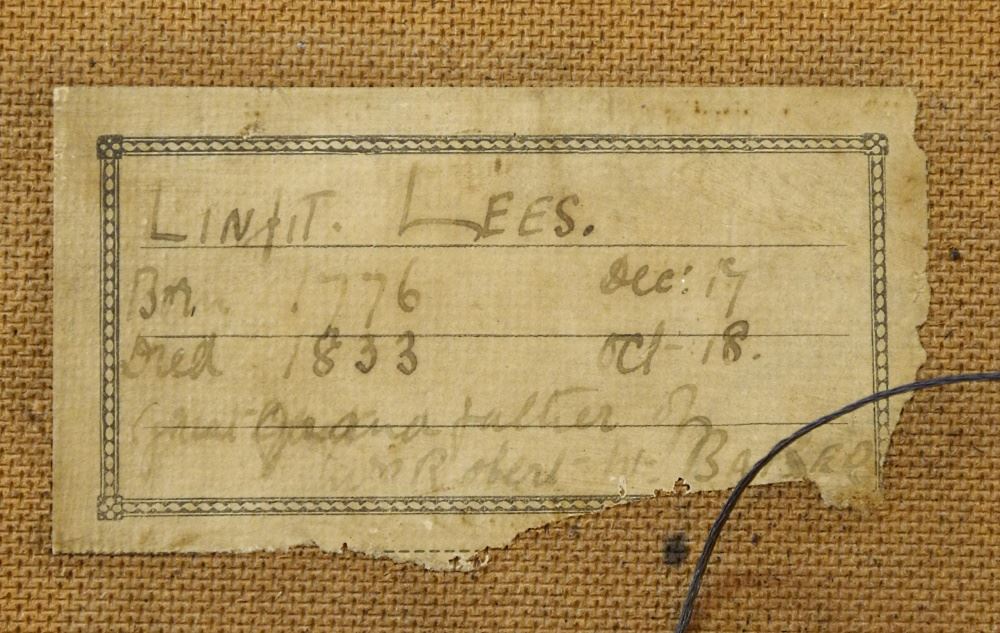 LINFIT. LEES.
Born 1776 Dec: 17
Died 1833 Oct 18.
Great Grandfather of
Robert H